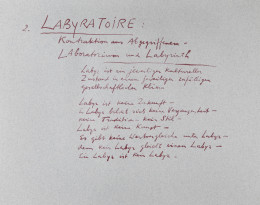 2. LABYRATOIRE:
Kontraktion aus Abgegriffenem -
LAboratorium und Labyrinth
Labyr ist ein jeweiliger kultureller
Zustand in einem jeweiligen
gesellschaftlichen Klima
Labyr ist keine Zukunft -
Labyr nicht kein Vergangenheit -
keine Tradition - kein Stil -
Labyr ist keine Kunst -
Es gibt keine unter Labyr -
denn kein Labyr gleicht einem Labyr -
Ein Labyr ist kein Labyr.